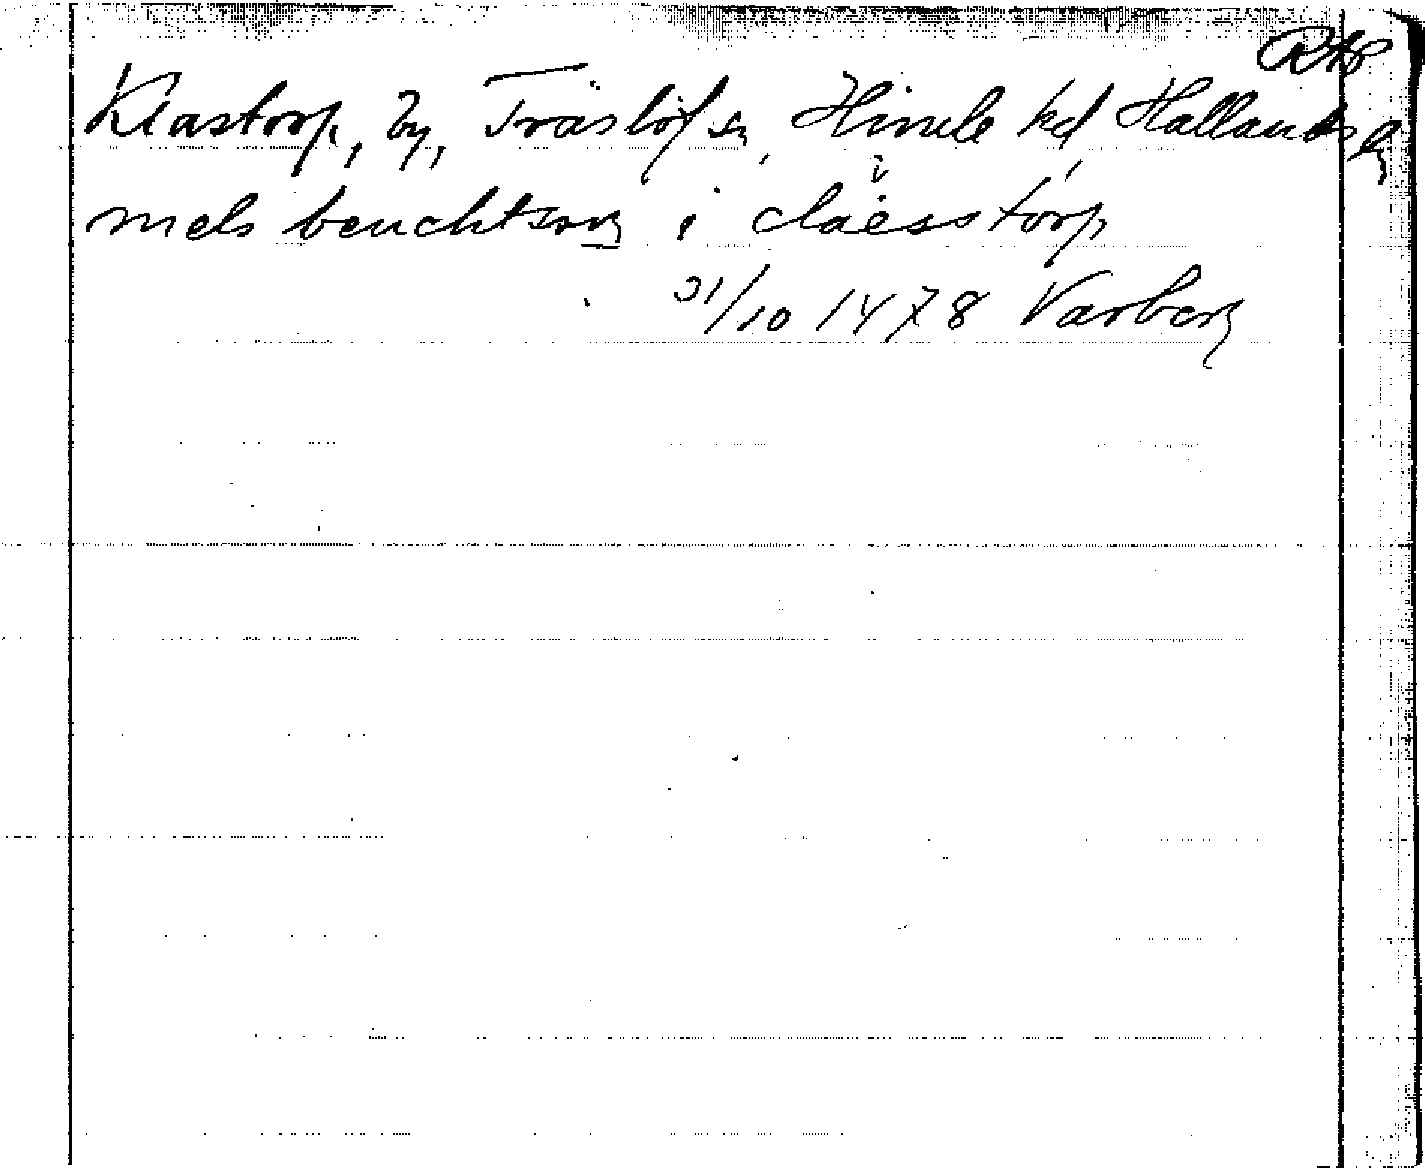 RAp
Klastorp, by, Träslöf sn, Himle hd Hallands län
niels benchtson i claësstorp
31/10 1478 Varberg